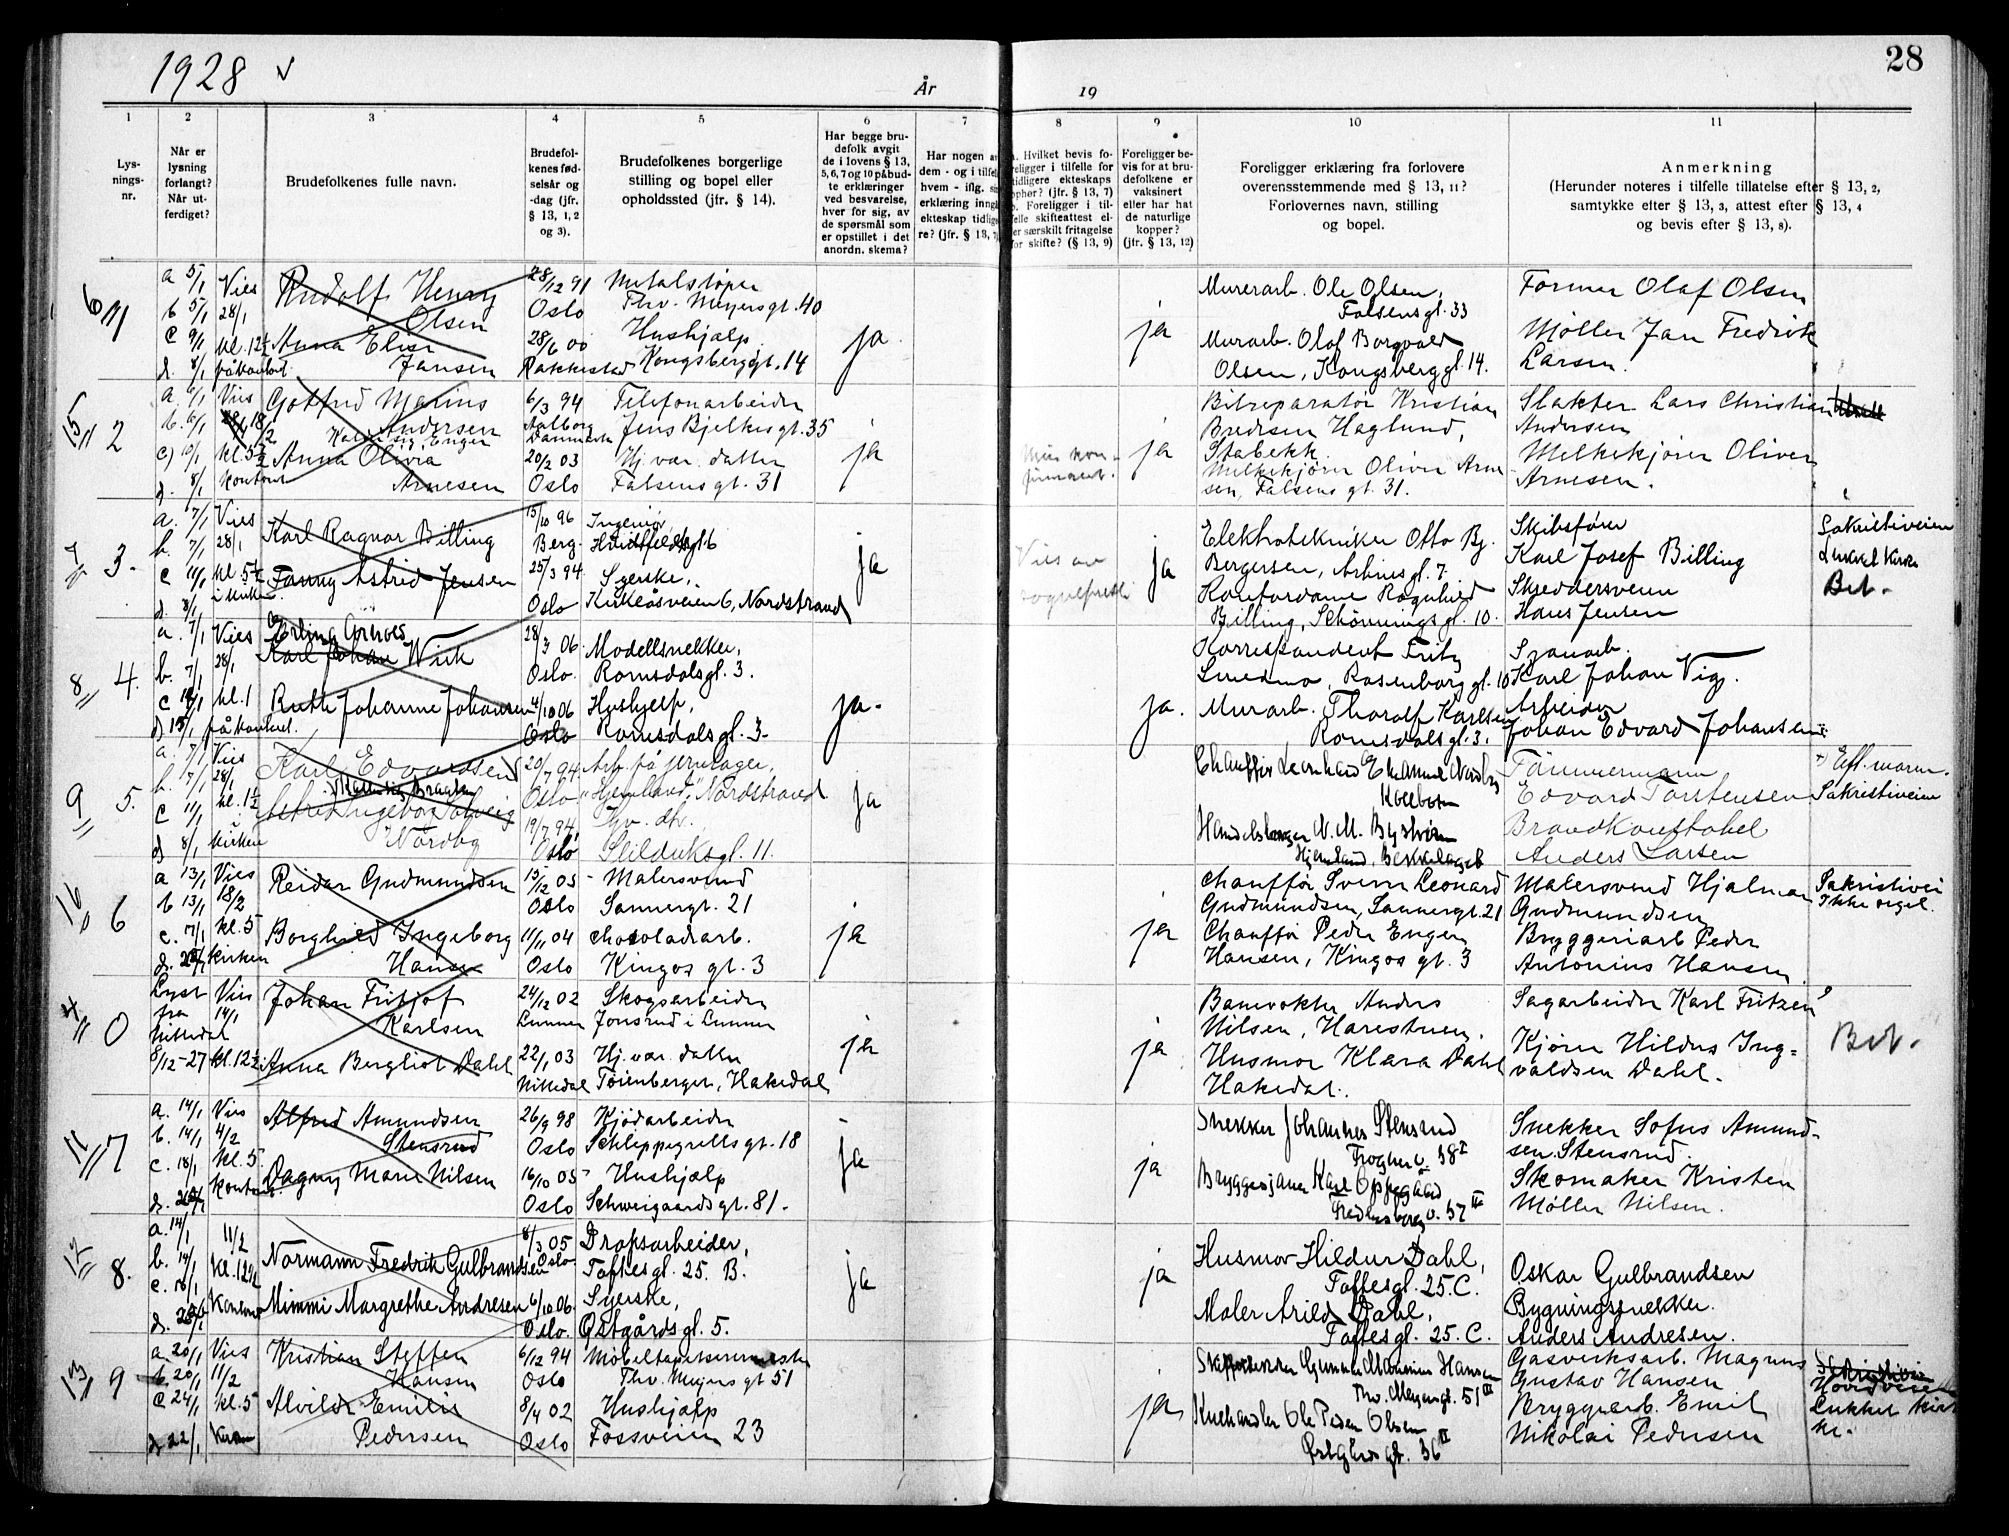 1928
År
19
28
1
2
3
4
5
6
7
8
9
10
11
Lys-
nings-
nr.
Når er
lysning
forlangt?
Når ut-
ferdiget?
Brudefolkenes fulle navn.
Brudefol-
kenes fød-
selsår og
-dag (jfr.
§ 13, 1, 2
og 3).
Brudefolkenes borgerlige
stilling og bopel eller
opholdssted (jfr. § 14).
Har begge bru-
defolk avgit
de i lovens § 13,
5, 6, 7 og 10 påbud-
te erklæringer
ved besvarelse,
hver for sig, av
de spørsmål som
er opstillet i det
anordn. skema?
Har nogen a
dem - og i tilfel
hvem - iflg. si
erklæring inng
ekteskap tidlig
re? (jfr. § 13,
a. Hvilket bevis fo-
religger i tilfelle for
tidligere ekteskaps
ophør? (jfr. § 13, 7)
b. Foreligger i til-
felle skifteattest el-
er særskilt fritagelse
for skifte? (§ 13, 9)
Foreligger be-
vis for at bru-
defolkene er
vaksinert
eller har hat
de naturlige
kopper?
(jfr. § 13, 12)
Foreligger erklæring fra forlovere
overensstemmende med § 13, 11?
Forlovernes navn, stilling
og bopel.
Anmerkning
(Herunder noteres i tilfelle tillatelse efter § 13, 2,
samtykke efter § 13, 3, attest efter § 13, 4
og bevis efter § 13, 8).
6/11
a 5/1 Vies
b 5/1 28/1
c 9/1 kl. 12½
d. 8/1 på kontoret.
Rudolf Henry
Olsen
Anna Elise
Jansen
28/12 91
Oslo
28/6 00
Rakkestad
Metalstøper
Thv. Meyersgt. 40
Hushjælp
Kongsberggt. 14
ja
ja
Murerarb. Ole Olsen,
Falsensgt. 33
Murarb. Olaf Borgvald
Olsen, Kongsberggt. 14.
Former Olaf Olsen
Møller Jan Fredrik
Larsen.
2
a. 6/1 Vies
b. 6/1
c) 10/1 kl. 5½
d. 8/1 kontoret
Gotfred Marius
Andersen
Anna Olivia
Arnesen
6/3 94
Aalborg
Danmark
20/2 03
Oslo
Telefonarbeider
Jens Bjelkesgt. 35
Hj. vær. datter
Falsens gt. 31
ja
ja
Bilreparatør Kristian
Bredesen Haglund,
Stabekk.
Melkekjører Oliver Arne-
sen, Falsens gt. 31.
Slakter Lars Christian
Andersen
Melkekjører Oliver
Arnesen.
3.
a. 7/1 Vies
b. 7/1 28/1
c 11/1 kl. 5½
d. 8/1 i kirken
Karl Ragnar Billing
Fanny Astrid Jensen
15/10 96
Berg.
25/3 94
Oslo
Ingeniør
Syerske,
Kirkeåsveien 6, Nordstrand
ja
Vies av
ja
Elektrotekniker Otto Bj.
Bergersen,
Kontordame Ragnhild
Billing, Schønningsgt. 10.
Skibsfører
Karl Josef Billing
Skreddersvenn
Hans Jensen
Sakristiveien
Lukket Kirke
Bet.
8/11 4.
a. 7/1 Vies
b. 7/1 28/1
c 14/1 kl. 1
på kontoret.
Karl Johan Wiik
Ruth Johanne Johansen
28/3 06
Oslo.
4/10 06
Oslo
Modellsnekker,
Romsdalsgt. 3.
Hushjelp,
Romsdalsgt. 3.
ja.
ja.
Korrespondent Fritz
Rosenborggt. 10
Murarb. Thoralf Karlsen
Romsdalsgt. 3.
Karl Johan Vig.
Arbeider
Johan Edvard Johansen
9/11 5.
a. 7/1 Vies
b. 7/1 28/1
c 11/1 kl. 1½
d 8/1 kirken
Karl Edvardsen
Astrid Ingeborg Solveig
Nordby
20/7 94
Oslo
19/7 94
Oslo
Arb. på jernlager,
"Hjemland", Nordstrand
Hv. dtr.
Seilduksgt. 11.
ja
Chauffør Leonhard Ekanner Nordby
Kolbotn
N. M. Bystrøm
Hjemland, Bekkelaget
Tømmermann
Edvard Torstensen
Brandkonstabel
Anders Larsen
Sakristiveien
6
a 13/1 Vies
b 13/1 18/2
c. 17/1 kl. 5
kirken
Reidar Gudmundsen
Borghild Ingeborg
Hansen
15/12 05
Oslo
11/11 04
Oslo
Malersvend
Sannergt. 21
Chocoladearb.
Kingos gt. 3
ja
ja
Chauffør Sverre Leonard
Gudmundsen, Sannergt. 21
Chauffør Peder Enger
Hansen, Kingos gt. 3
Malersvend Hjalmar
Gudmundsen
Bryggeriarb. Peder
Antonius Hansen.
Sakristivei
Ikke orgel.
0
Lyst Vies
fra 14/1
Nittedal
8/12-27 kl. 12½
Johan Fritjof
Karlsen
Anna Bergliot Dahl
24/12 02
Lunner
22/1 03
Nittedal
Skogsarbeider
Jonsrud i Lunner
Hj. vær. datter
Tøienberget, Hakedal
ja
ja
Banevokter Anders
Nilsen, Harestuen.
Husmor Klara Dahl
Hakedal.
Sagarbeider Karl Fritzen
Kjører Hildus Ing-
valdsen Dahl.
Bet.
11/11 7
a. 14/1 Vies
b. 14/1 4/2
c. 18/1 kl. 5
kontoret.
Alfred Amundsen
Stensrud
Dagny Marie Nilsen
26/9 98
Oslo
16/10 05
Oslo
Kjødarbeider
Schleppegrells gt. 18
Hushjælp
Schweigaardsgt. 81.
ja
ja
Snekker Johannes Stensrud
Bryggesjauer Karl Oppegaard
Fredensborg v. 57 III
Snekker Sofus Amund-
sen Stensrud.
Skomaker Kristen
Møller Nilsen.
12/11 8.
a. 14/1 11/2
b. 14/1 kl. 12½
c. 18/1 kontoret
Normann Fredrik Gulbrandsen
Mimmi Margrethe Andresen
8/3 05
Oslo
6/10 06.
Oslo.
Dropsarbeider,
Toftesgt. 25. B.
Syerske,
Østgårdsgt. 5.
ja
ja
Husmor Hildur Dahl,
Toftesgt. 25. C.
Maler Arild Dahl,
Toftesgt. 25. C.
Oskar Gulbrandsen
Bygningssnekker.
Anders Andresen.
9
a. 20/1 Vies
b. 20/1 11/2
c 24/1 kl. 5
d. 22/1 kirken
Kristian Steffen
Hansen
Alvilde Emilie
Pedersen
6/12 94
Oslo
8/4 02
Oslo
Møbeltapetserermester
Thv. Meyers gt 51
Hushjælp
Fossveien 23
ja
Gunnar Marinius Hansen
Thv. Meyersgt. 51 III
Ole Peder Olsen
36 II
Gasverksarb. Magnus
Gustav Hansen
Bryggeriarb. Emil
Nikolai Pedersen
Lukket kir
ke.